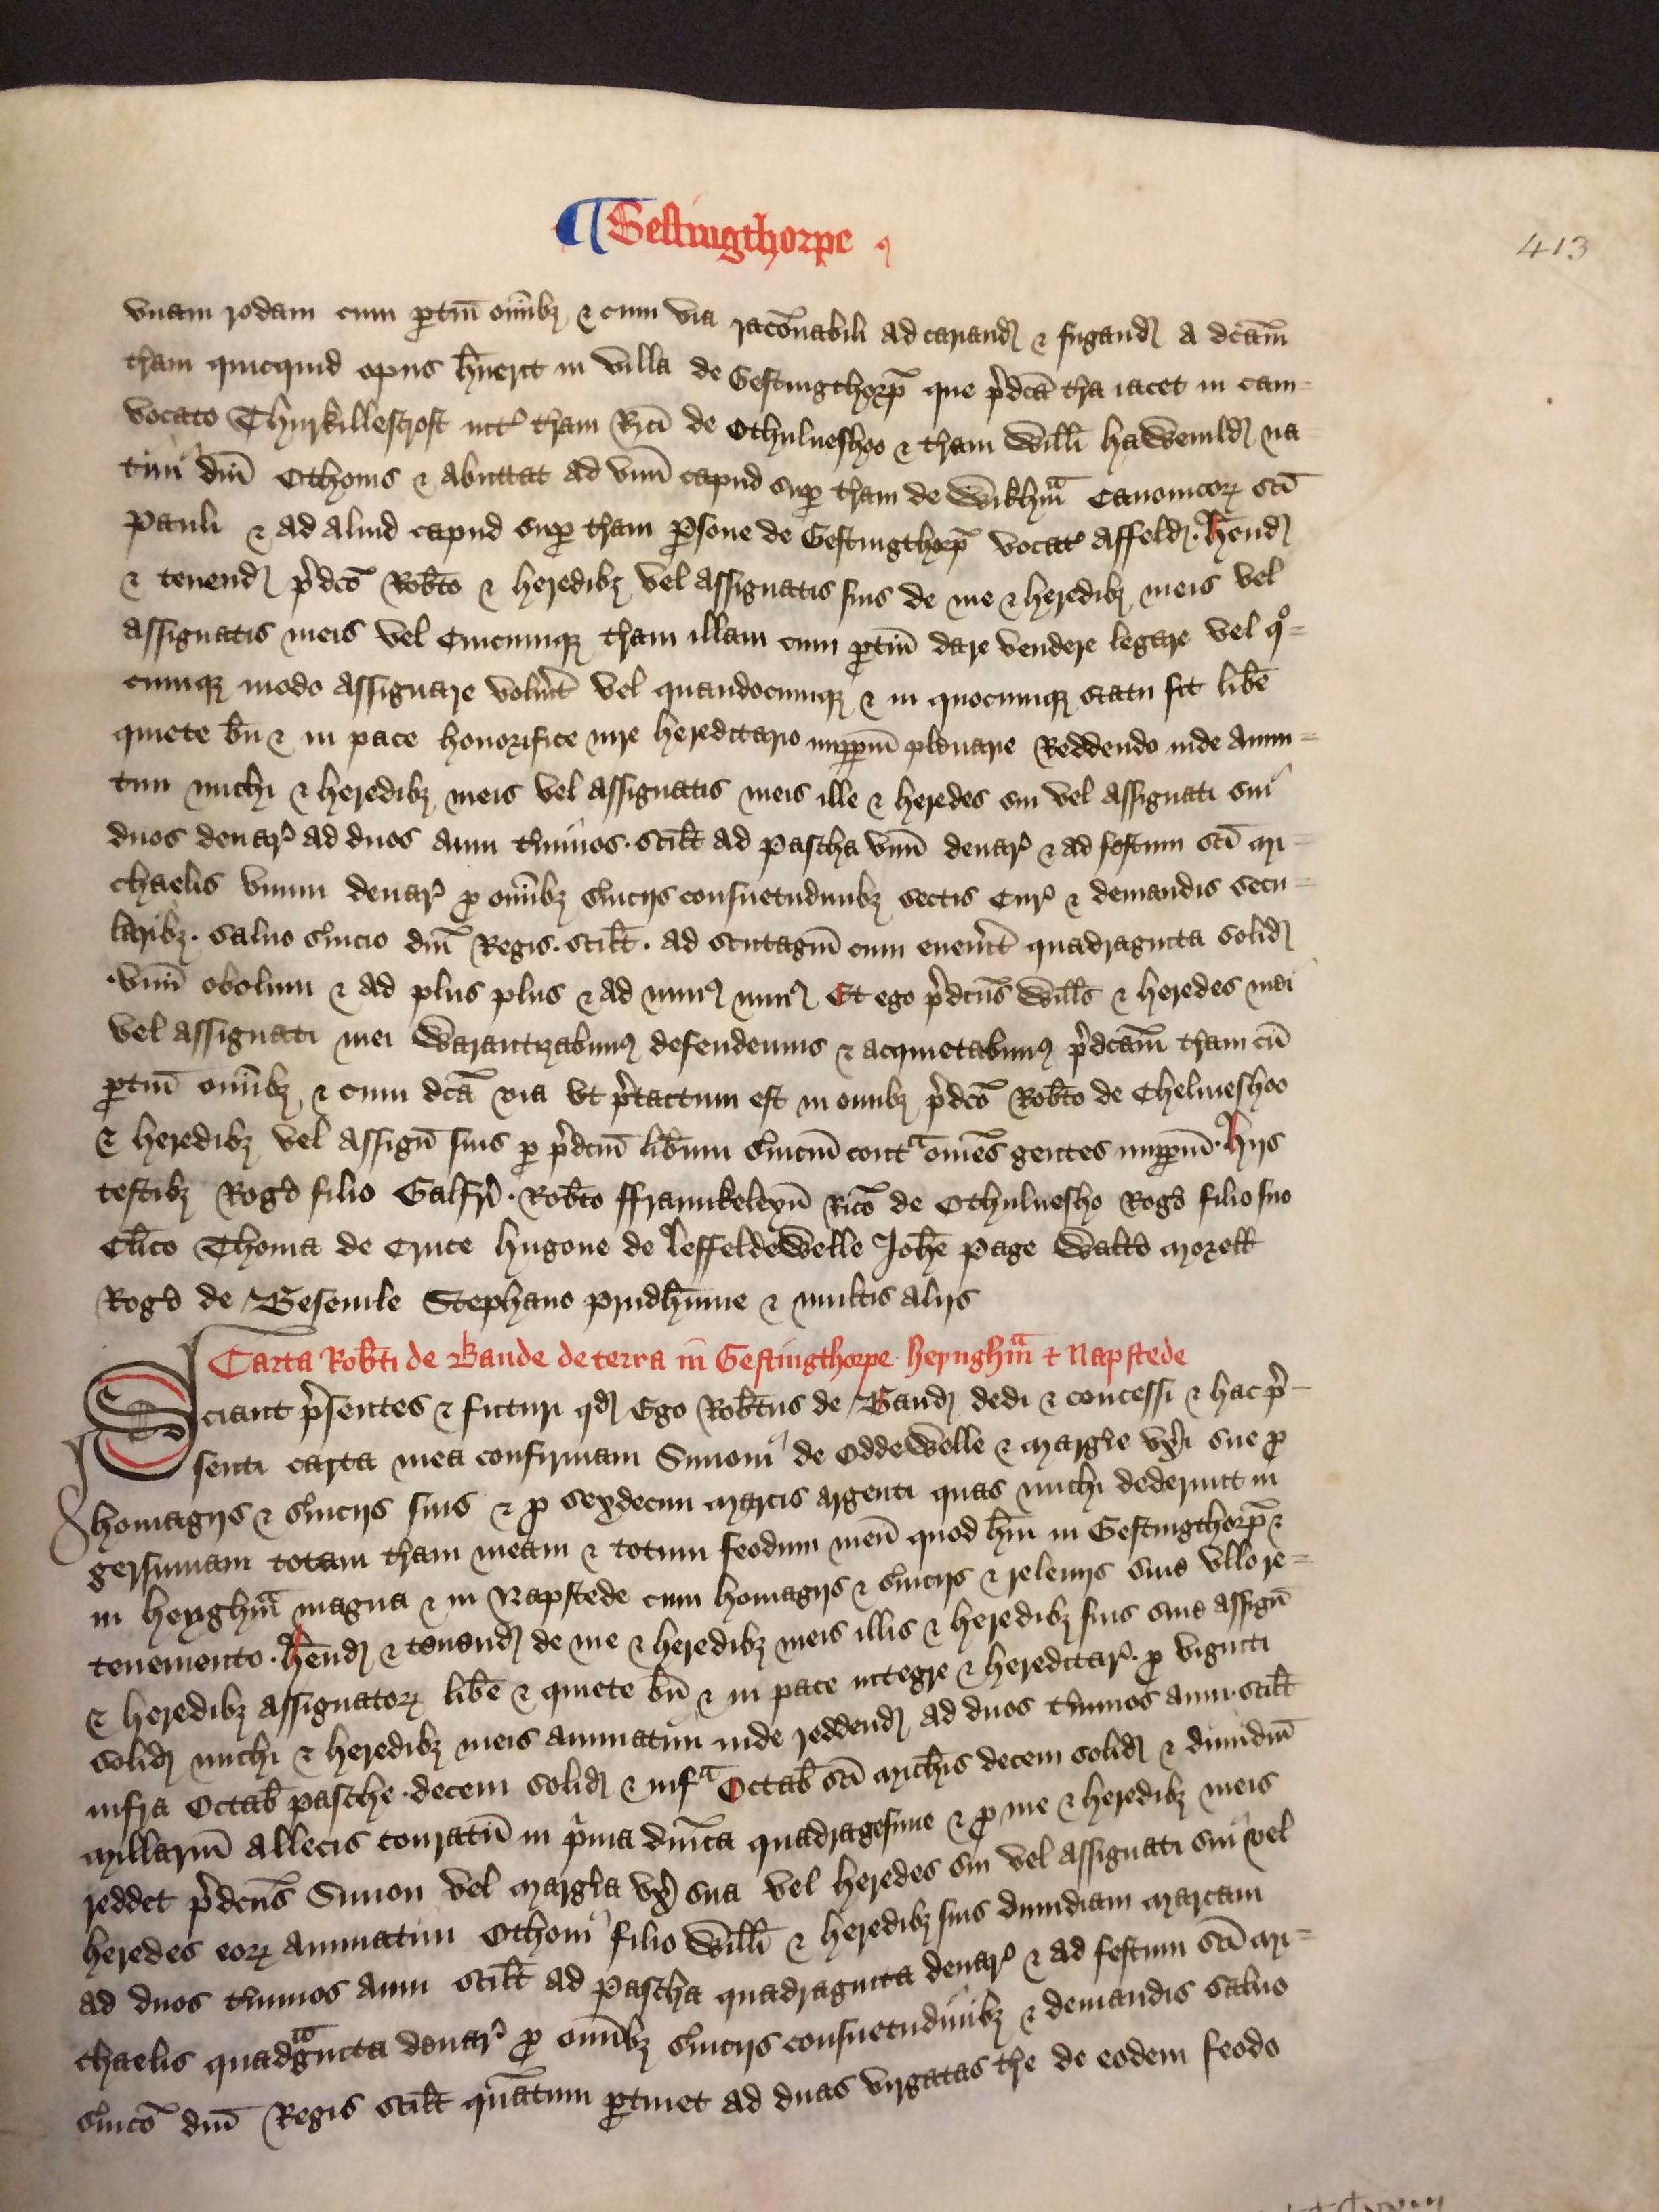 ¶ Gestingthorpe
413
vnam rodam cum ꝑtin̄ om̄ibꝫ ⁊ cum via rac̄onabili ad cariand̄ ⁊ fugand̄ a dc̄am
t̄ram quicquid opus h̄uerit in villa de Gestingthorp̄ que p̄dc̄a t̄ra iacet in cam-
vocato Thurkillescroft int̄ t̄ram Ric̄i de Othulueshoo ⁊ t̄ram Will̄i haWenild̄ na
tiui dn̄i Othonis ⁊ abuttat ad vnū capud suꝑ t̄ram de Wikhm̄ Canonicoꝝ sc̄i
Pauli ⁊ ad aliud capud suꝑ t̄ram ꝑsone de Gestingthorp̄ vocat̄ affeld̄. H̄end̄
⁊ tenend̄ p̄dc̄o Rob̄to ⁊ heredibꝫ vel assignatis suis de me ⁊ heredibꝫ meis vel
assignatis meis vel Cuicumqꝫ t̄ram illam cum ꝑtin̄ dare vendere legare vel qͦ-
cumqꝫ modo assignare voluit̄ vel quandocumqꝫ ⁊ in quocumqꝫ statu sit lib̄e
quiete bn̄ ⁊ in pace honorifice iure hereditario inꝑpm̄ plenarie Reddendo inde Annu-
tim michi ⁊ heredibꝫ meis vel assignatis meis ille ⁊ heredes sui vel assignati sui
duos denar̄ ad duos anni t̄minos. scilt̄ ad Pascha vnū denar̄ ⁊ ad festum sc̄i Mi-
chaelis vnum denar̄ ꝓ om̄ibꝫ s̄uiciis consuetudinibꝫ sectis Cur̄ ⁊ demandis secu-
laribꝫ. saluo s̄uicio dn̄i Regis. scilt̄. ad scutagiū cum euen̄it quadraginta solid̄
.vnū obolum ⁊ ad plus plus ⁊ ad minꝰ minꝰ Et ego p̄dcūs Will̄s ⁊ heredes mei
vel assignati mei Warantizabimꝰ defendemus ⁊ acquietabimꝰ p̄dc̄am t̄ram cū
ꝑtin̄ om̄ibꝫ ⁊ cum dc̄a via vt p̄tactum est in omibꝫ p̄dc̄o Rob̄to de Chelueshoo
⁊ heredibꝫ vel assign̄ suis ꝑ p̄dcm̄ lib̄um s̄uiciū contᵃ om̄es gentes inꝑpm̄. Hijs
testibꝫ Roḡo filio Galfr̄i. Rob̄to ffraunkeleyn̄ Ric̄o de Othulуesho Roḡo filio suo
Cl̄ico Thoma de Cruce Hugone de leffeldeWelle Joh̄e Page Walt̄o Morell̄
Roḡo de Gesemle Stephano prudh̄mme ⁊ multis alijs
Carta Rob̄ti de Baude de terra in Gestingthorpe heynghm̄ ⁊ Napstede
Sciant p̄sentes ⁊ futuri qd̄ Ego Rob̄tus de Baud̄ dedi ⁊ concessi ⁊ hac p̄-
senti carta mea confirmaui Simoni de OddeWelle ⁊ Margīe vx̄i sue ꝓ
homagijs ⁊ s̄uicijs suis ⁊ ꝓ sexdecim Marcis argenti quas michi dederunt in
gersumam totam t̄ram meam ⁊ totum feodum meū quod h̄ui in Gestingthorp̄ ⁊
in heyghm̄ magna ⁊ in Napstede cum homagijs ⁊ s̄uicijs ⁊ releuijs sine vllo re-
tenemento. H̄end̄ ⁊ tenend̄ de me ⁊ heredibꝫ meis illis ⁊ heredibꝫ suis siue assign̄
⁊ heredibꝫ assignatoꝝ lib̄e ⁊ quiete bn̄ ⁊ in pace integre ⁊ hereditar̄. ꝓ viginti
solid̄ michi ⁊ heredibꝫ meis annuatim inde reddend̄ ad duos t̄minos anni. scilt̄
infra Octab̄ pasche. decem solid̄ ⁊ infᵃ Octab̄ sc̄i Mich̄is decem solid̄ ⁊ dimidiū
Millariū allecis conratiū in p̄ma dn̄ica quadragesime ⁊ ꝓ me ⁊ heredibꝫ meis
reddet p̄dcūs Simon vel Margīa vx̄ sua vel heredes sui vel assignati sui vel
heredes eoꝝ annuatim Othoni filio Will̄i ⁊ heredibꝫ suis dimidiam Marcam
ad duos t̄minos anni scilt̄ ad Pascha quadraginta denar̄ ⁊ ad festum sc̄i Mi-
chaelis quadᵃginta denar̄ ꝓ om̄ibꝫ s̄uicijs consuetudinibꝫ ⁊ demandis saluo
s̄uic̄o dn̄i Regis scilt̄ quātum ꝑtinet ad duas virgatas t̄re de eodem feodo